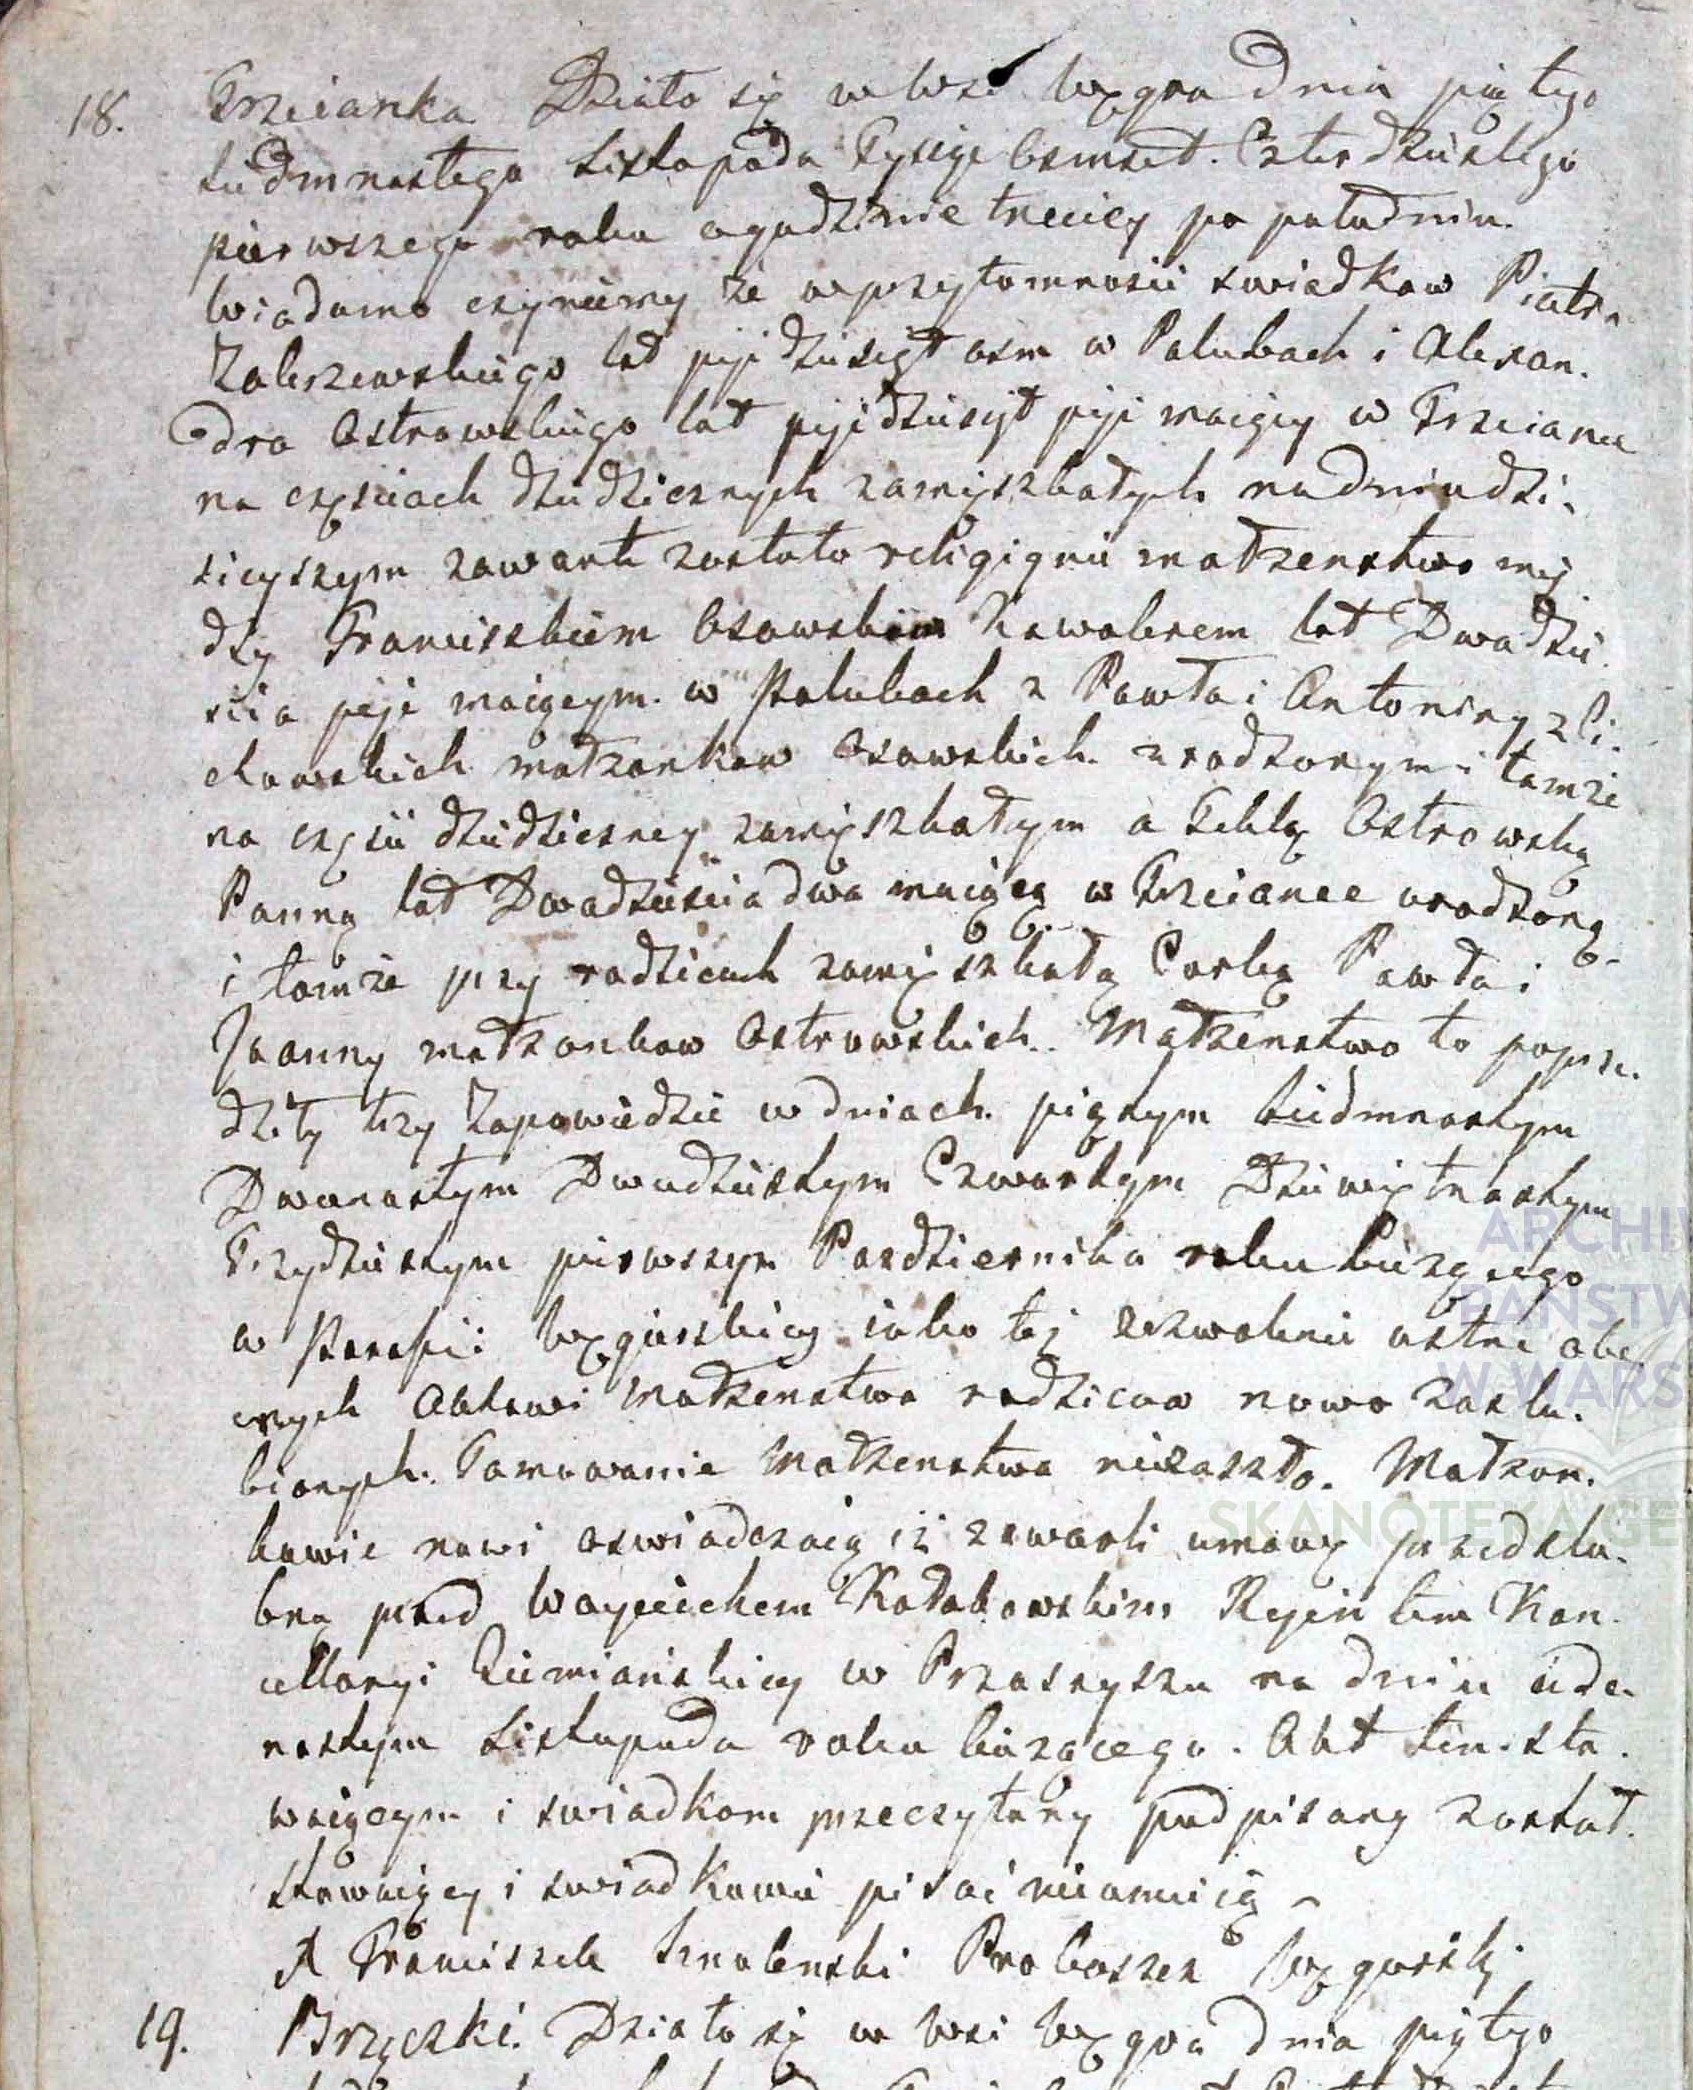 18. Trzcianka Działo się w Wsi Węgra dnia piątego
siedmnastego Listopada Tysiąc Osmset. Czterdziestego
pierwszego roku o godzinie trzeciey po południu.
Wiadomo czyniemy że w przytomności swiadkow Piotra
Zaleszewskiego lat pięćdziesiąt osm w Palubach i Alexan.
dra Ostrowskiego lat pięćdziesiąt pięć maiący w Trzciance
na częściach dziedzicznych zamięszkałych na dniu dzi.
sieyszym zawarte zostało religignie małżenstwo mię
dzy Franciszkiem Osowskim Kawalerem lat Dwadzie.
scia pięć maiącym. w Palubach z Pawła i Antoniny z Ci.
chowskich małżonkow Osowskich. urodzonym i tamże
na części dziedziczney zamięszkałym a Teklą Ostrowską
Panną lat Dwadzieścia dwa maiącą w Trzciance urodzoną
i tamże przy rodzicach zamięszkałą Corką Pawła i
Joanny małżonkow Ostrowskich. Małżenstwo to poprze.
dziły trzy Zapowiedzie w dniach. piąnym siedmnastym
Dwunastym Dwudziestym Czwartym Dziewiętnastym
Trzydziestym pierwszym Pazdziernika roku bieżącego
w Parafii Węgierskiey iako tęż zezwolenie ustne obe
cnych Aktowi Małżenstwa rodzicow nowo zaslu.
bionych. Tamowanie Małżenstwa niezaszło. Małżon.
kowie nowi oswiadczaią iż zawarli umowę przedslu.
bną przed Woyciechem Kołakowskim Rejentem Kan.
cellaryi Ziemiańskiey w Przasnyszu na dniu iede.
nastym Listopada roku bieżącego. Akt ten. sta.
waiącym i swiadkom przeczytany podpisany został.
Stawaiący i swiadkowie pisać nieumieią
X Franciszek Smolenski Proboszcz Węgierski
19. Brzęczki. Działo się w Wsi Węgra dnia piątego
ARCHIW
PAŃSTW
W WARS
SKANOTEKA.GE